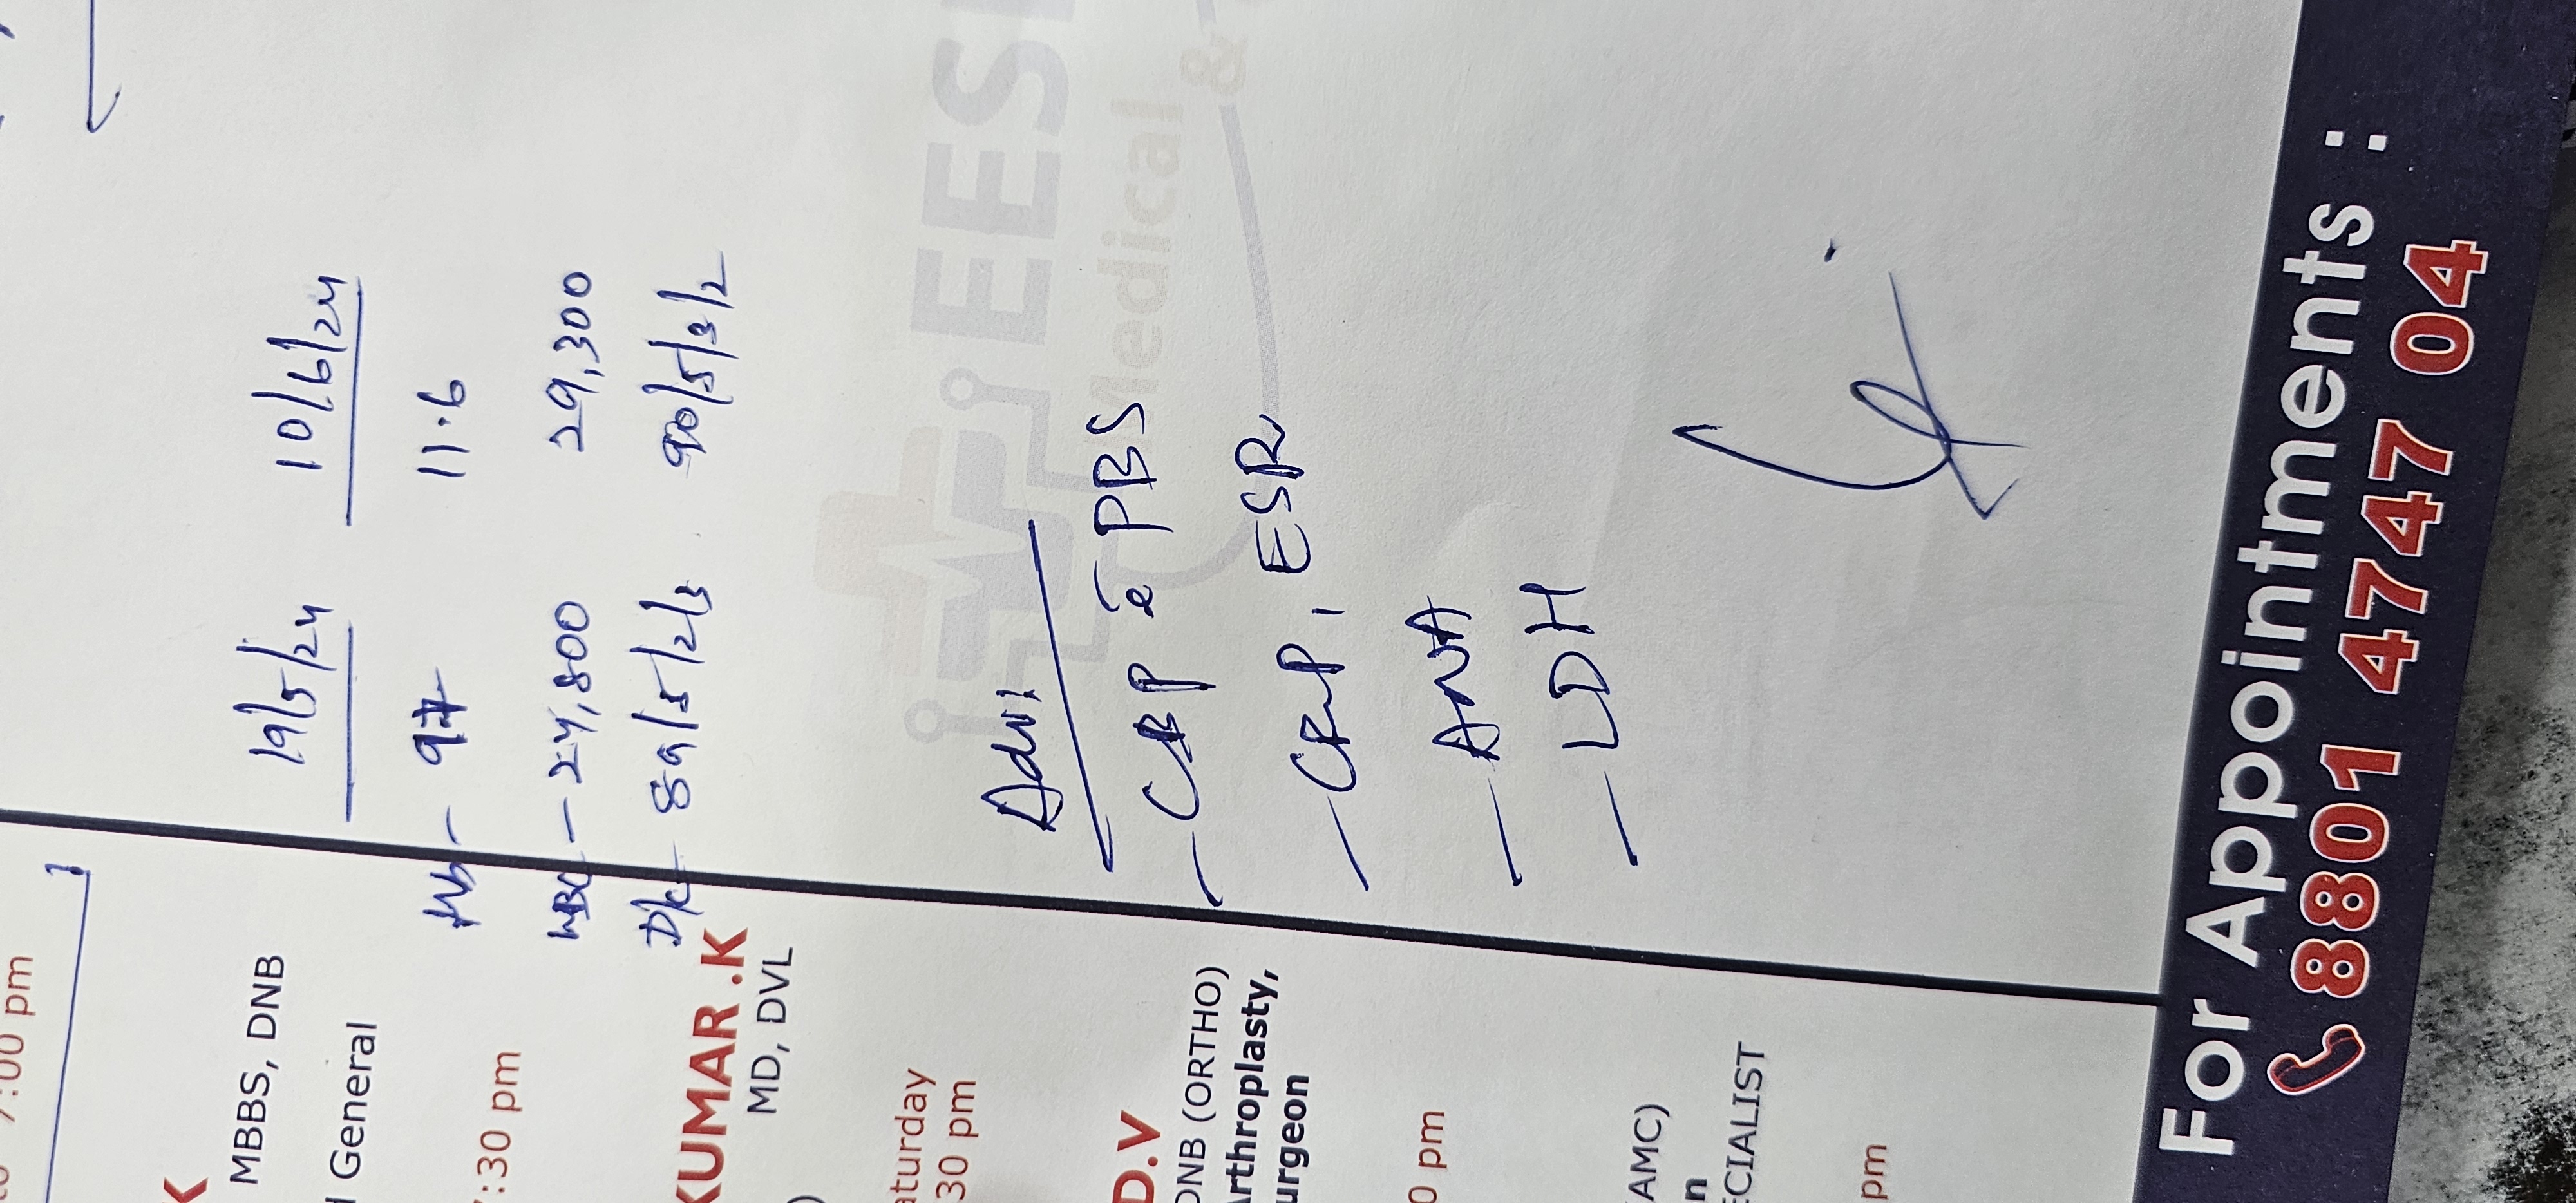 7:00 pm
K
MBBS, DNB
General
:30 pm
KUMAR .K
MD, DVL
aturday
30 pm
D.V
DNB (ORTHO)
rthroplasty,
urgeon
0 pm
AMC)
n
ECIALIST
pm
19/5/24 10/6/24
Hb - 11.6
WBC - 24,800 29,300
D/C - 89/5/2/3 90/5/3/2
Advi
- CBP c̄ PBS
- CRP, ESR
- ANA
- LDH
EES
Medical &
For Appointments :
8801 4747 04